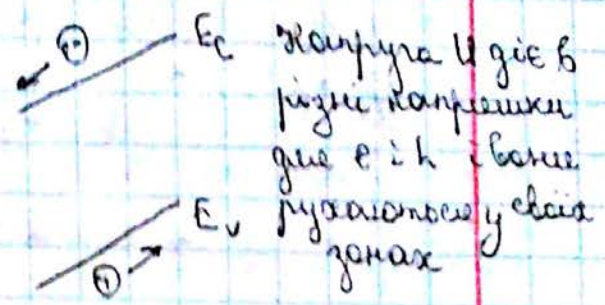 ⊖ E_c Напруга U діє в
різні напрямки
для e і h і вони
E_v рухаються у своїх
⊕ зонах